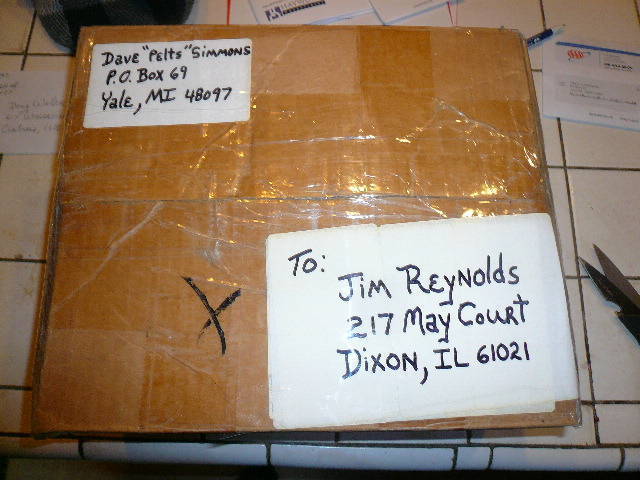 Dave "Pelts" Simmons
P.O. Box 69
Yale, MI 48097
To:
Jim Reynolds
217 May Court
Dixon, IL 61021
X